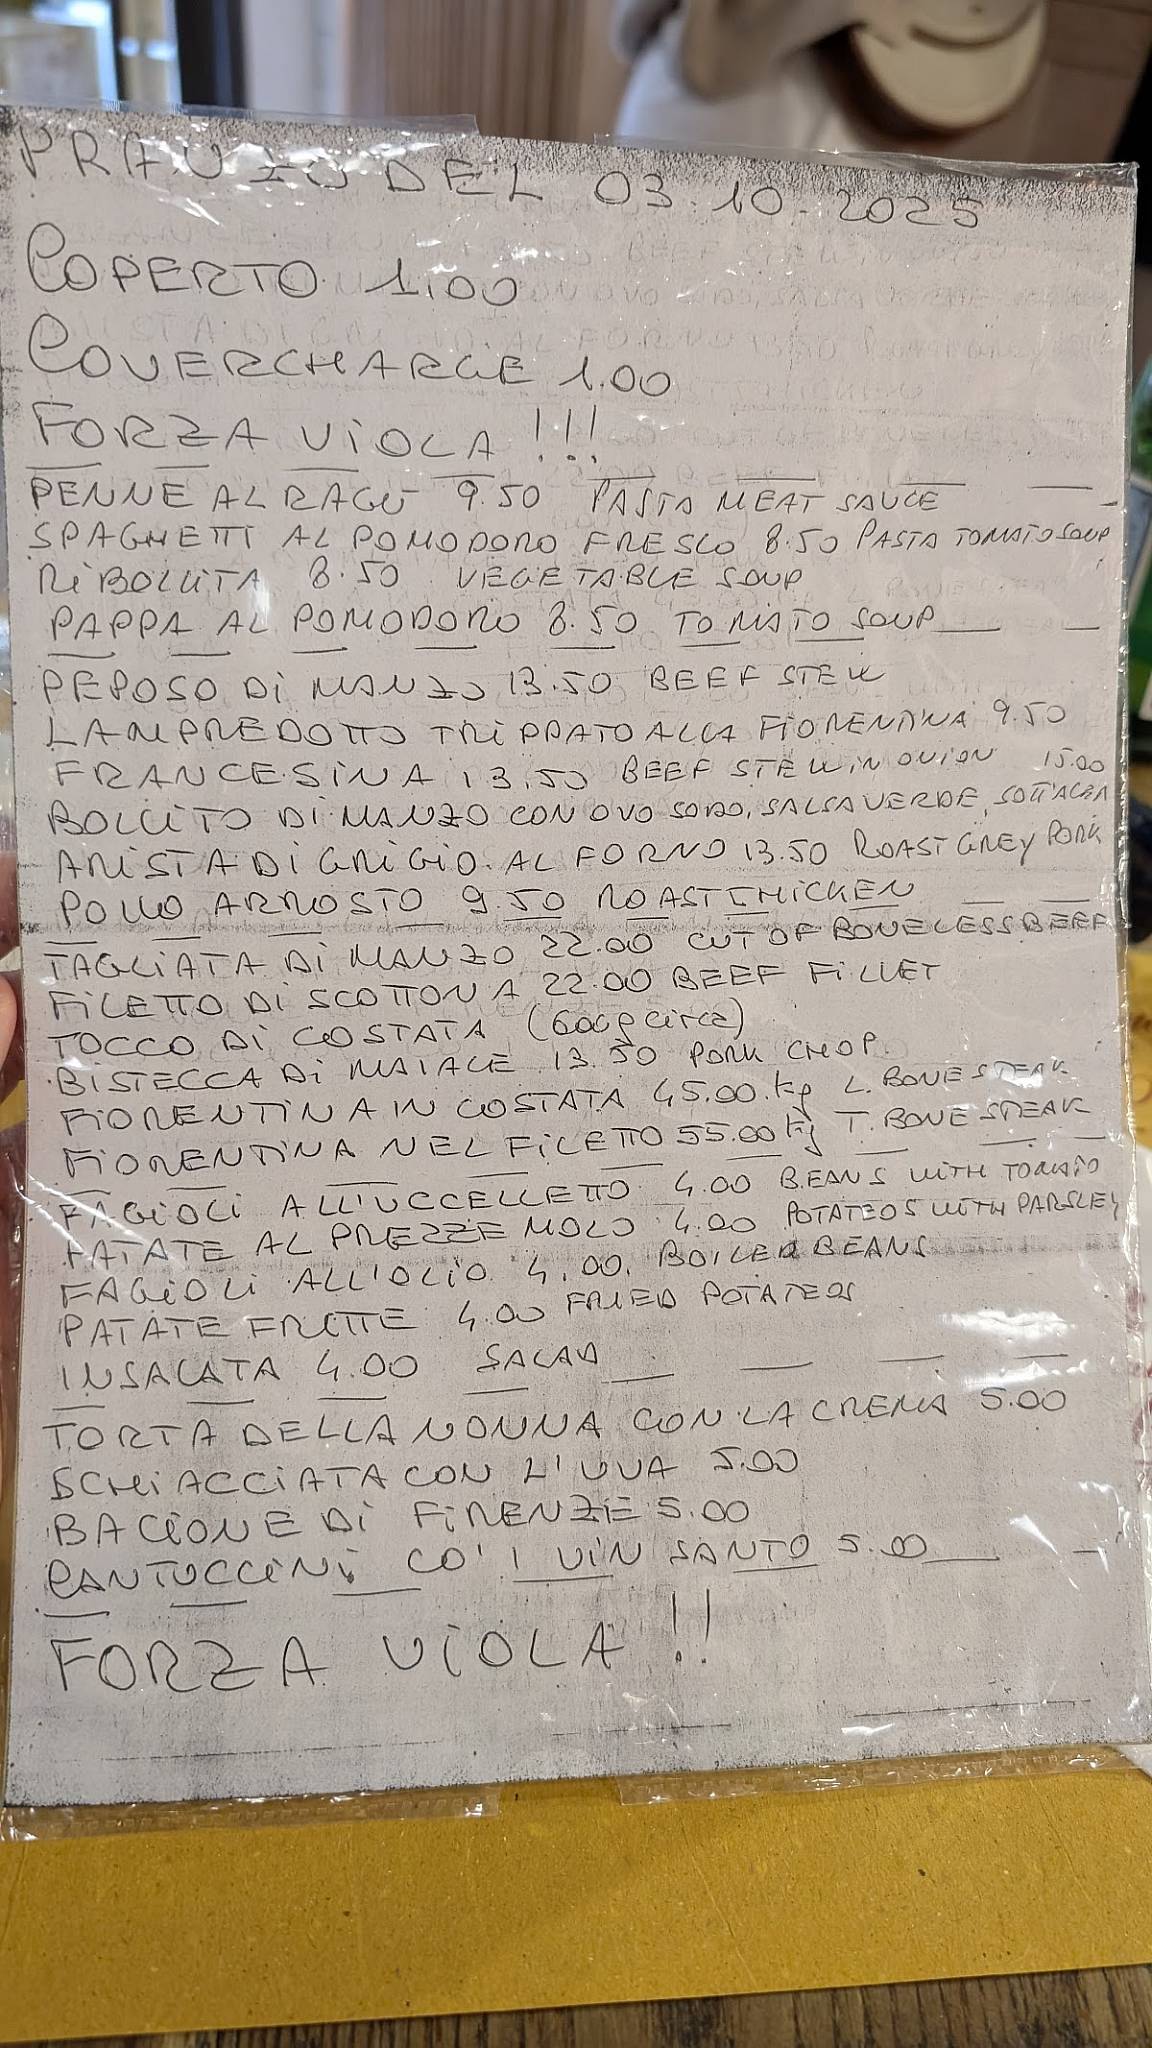 PRANZO DEL 03.10.2025
COPERTO 1.00
COVERCHARGE 1.00
FORZA VIOLA !!!
PENNE AL RAGÙ 9.50 PASTA MEAT SAUCE
SPAGHETTI AL POMODORO FRESCO 8.50 PASTA TOMATO SOUP
RIBOLLITA 8.50 VEGETABLE SOUP
PAPPA AL POMODORO 8.50 TOMATO SOUP
PEPOSO DI MANZO 13.50 BEEF STEW
LAMPREDOTTO TRIPPATO ALLA FIORENTINA 9.50
FRANCESINA 13.50 BEEF STEW IN ONION 15.00
BOLLITO DI MANZO CON OVO SODO, SALSA VERDE, SOTT'ACETI
ARISTA DI GRIGIO AL FORNO 13.50 ROAST GREY PORK
POLLO ARROSTO 9.50 ROAST CHICKEN
TAGLIATA DI MANZO 22.00 CUT OF BONELESS BEEF
FILETTO DI SCOTTONA 22.00 BEEF FILLET
TOCCO DI COSTATA (600g circa)
BISTECCA DI MAIALE 13.50 PORK CHOP.
FIORENTINA IN COSTATA 45.00 kg L. BONE STEAK
FIORENTINA NEL FILETTO 55.00 kg T. BONE STEAK
FAGIOLI ALL'UCCELLETTO 4.00 BEANS WITH TOMATO
PATATE AL PREZZEMOLO 4.00 POTATEOS WITH PARSLEY
FAGIOLI ALL'OLIO 4.00. BOILED BEANS
PATATE FRITTE 4.00 FRIED POTATEOS
INSALATA 4.00 SALAD
TORTA DELLA NONNA CON LA CREMA 5.00
SCHIACCIATA CON L'UVA 5.00
BACIONE DI FIRENZE 5.00
CANTUCCINI CO' I VIN SANTO 5.00
FORZA VIOLA !!